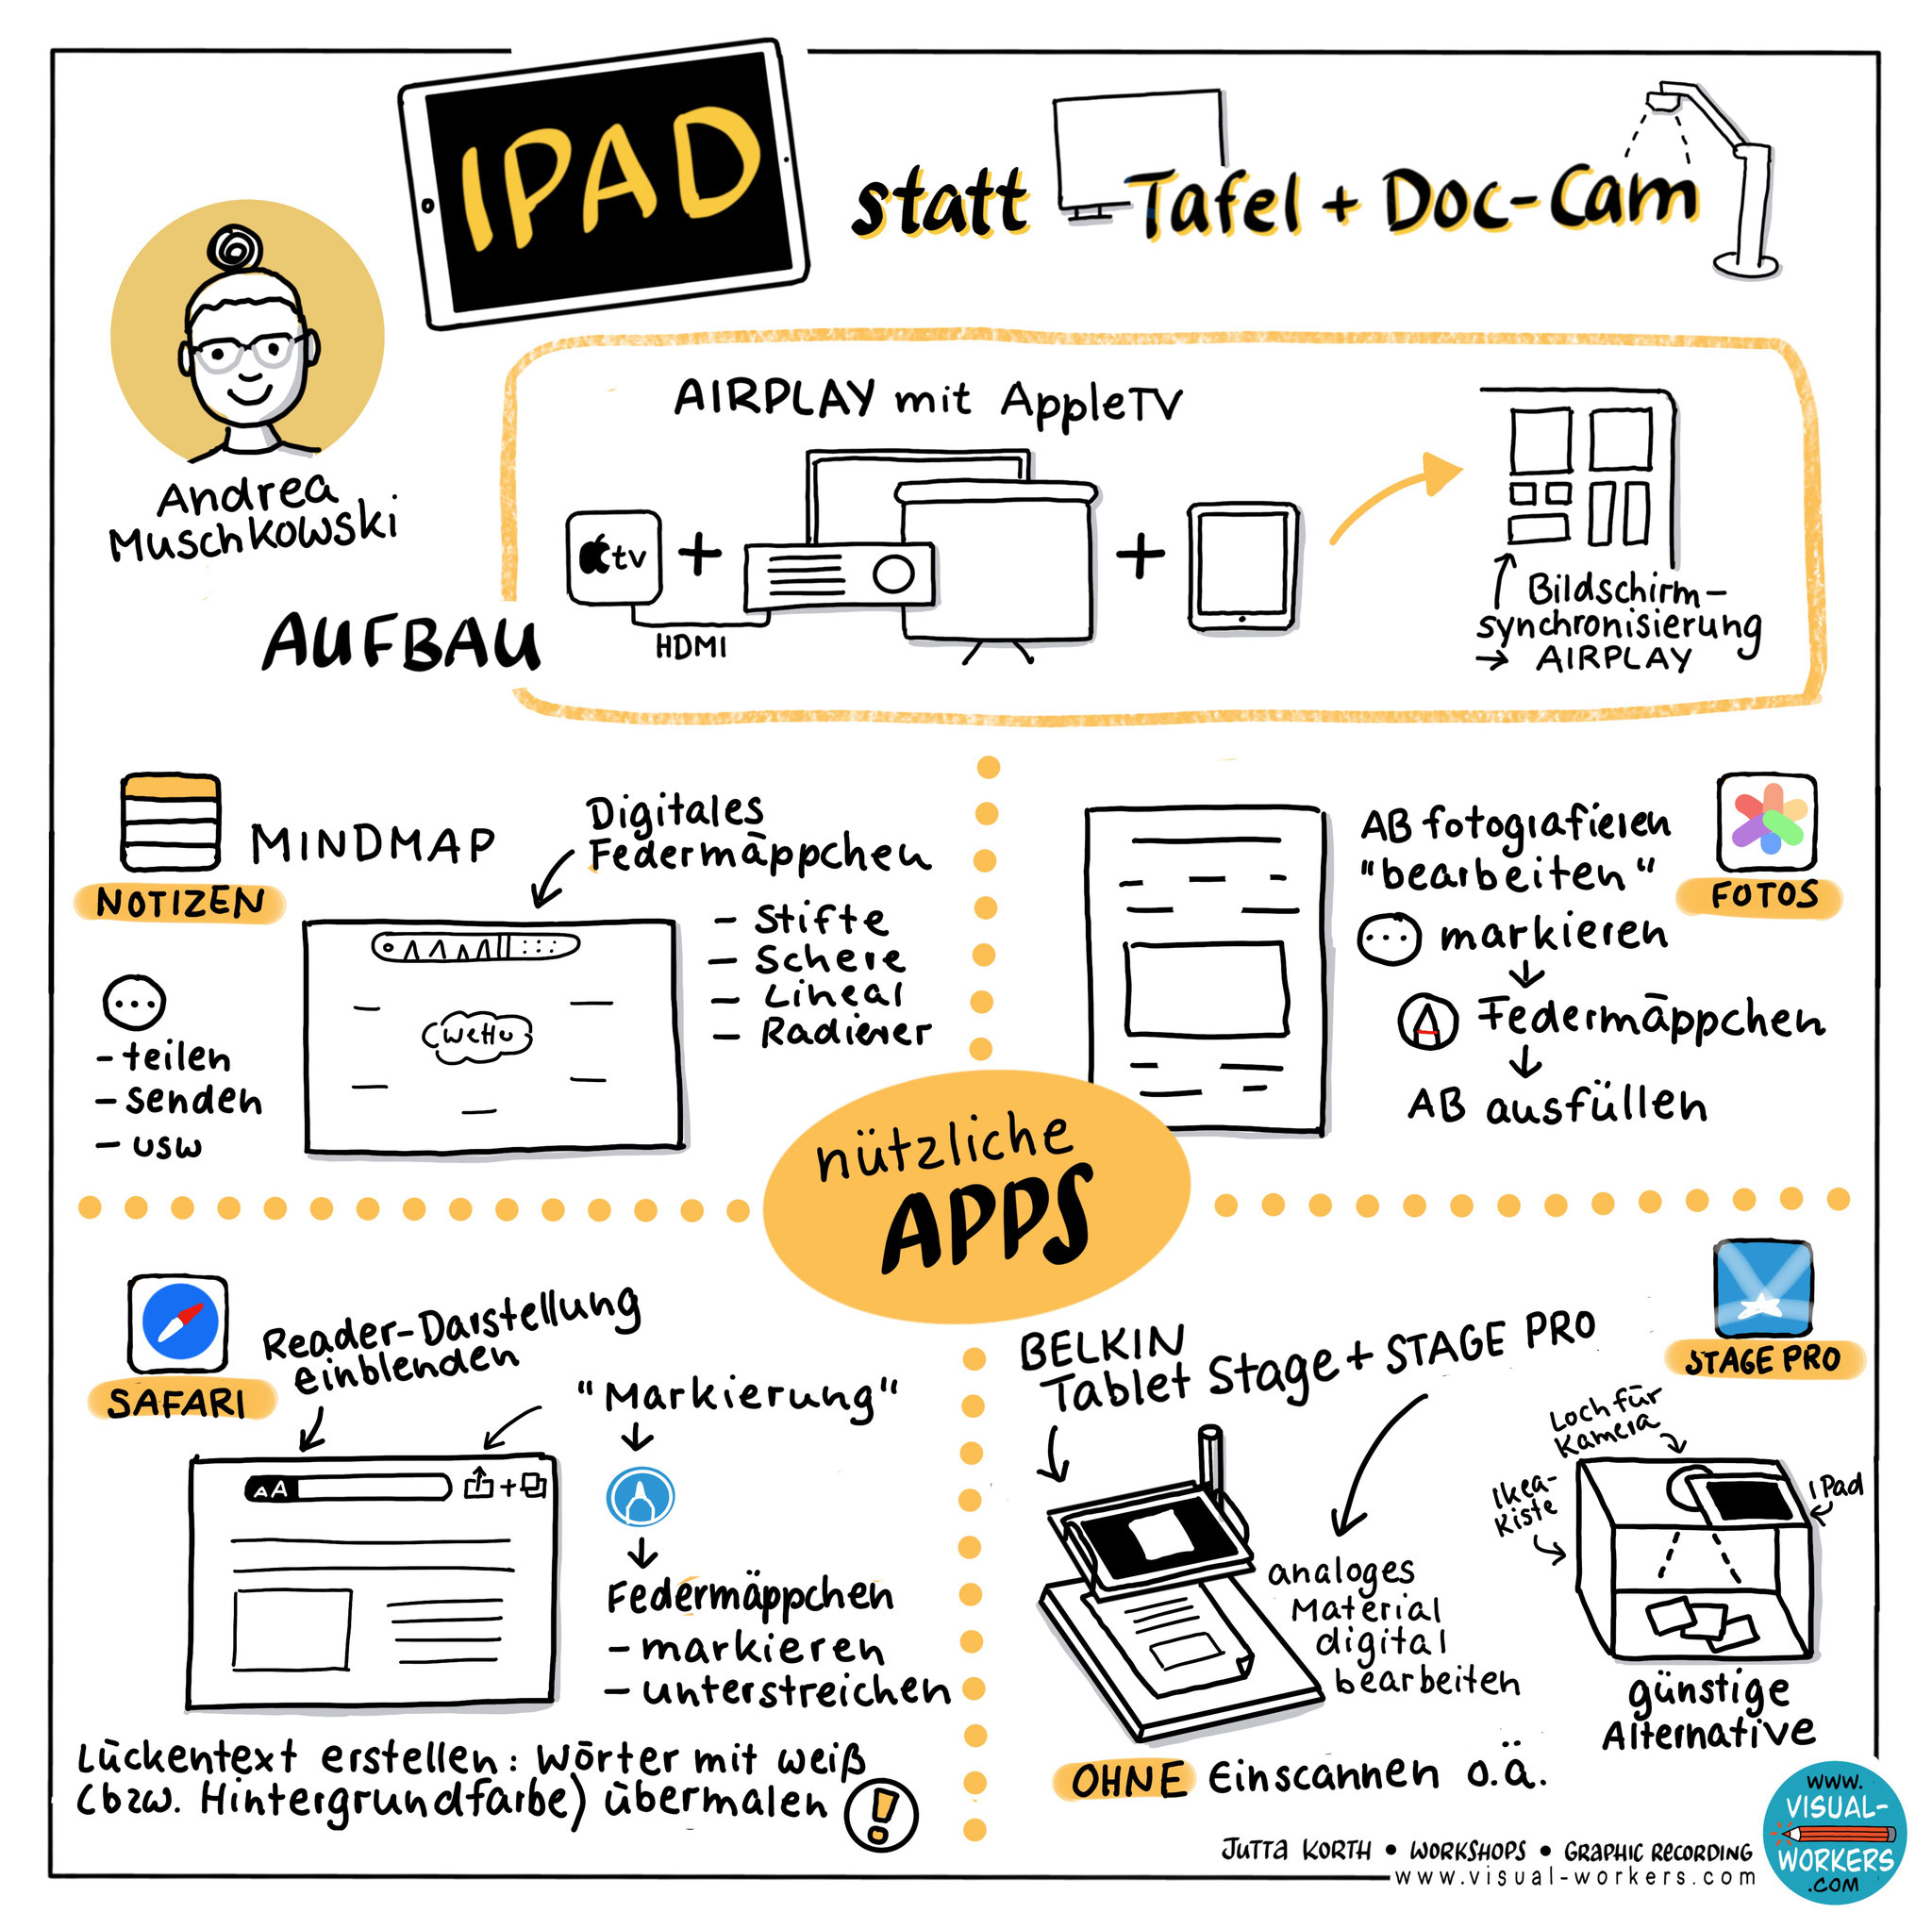 IPAD
statt Tafel + Doc-Cam
Andrea
Muschkowski
AUFBAU
AIRPLAY mit AppleTV
tv
+
+
HDMI
Bildschirm-
synchronisierung
→ AIRPLAY
NOTIZEN
MINDMAP
Digitales
Federmäppchen
- Stifte
- Schere
- Lineal
- Radierer
WeHu
- teilen
- senden
- usw
FOTOS
AB fotografieren
"bearbeiten"
markieren
Federmäppchen
AB ausfüllen
nützliche
APPS
SAFARI
Reader-Darstellung
einblenden
"Markierung"
AA
+
Federmäppchen
- markieren
- unterstreichen
Lückentext erstellen: Wörter mit weiß
(bzw. Hintergrundfarbe) übermalen !
STAGE PRO
BELKIN
Tablet Stage + STAGE PRO
analoges
Material
digital
bearbeiten
Loch für
Kamera
Ikea-
Kiste
IPad
günstige
Alternative
OHNE Einscannen o.ä.
JUTTA KORTH • WORKSHOPS • GRAPHIC RECORDING
www.visual-workers.com
WWW.
VISUAL-
WORKERS
.COM